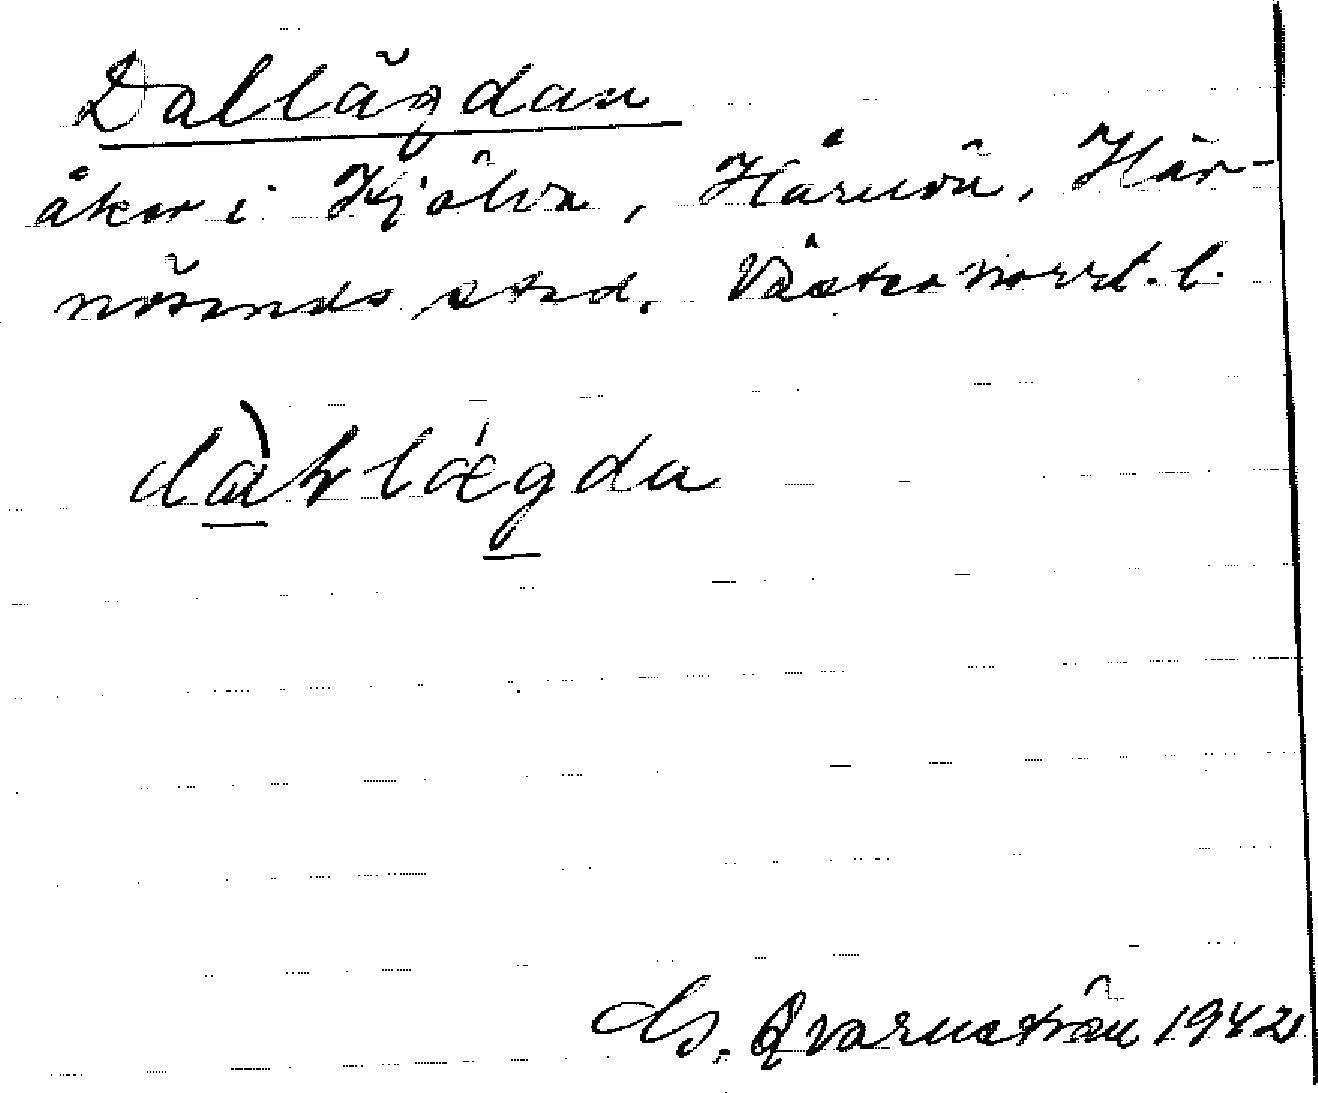 Dallägdan
åker i Kjölva, Härnön, Här-
nösands stad. Västernorrl. l.
dàlilǽgda
G. Qvarnström 1942